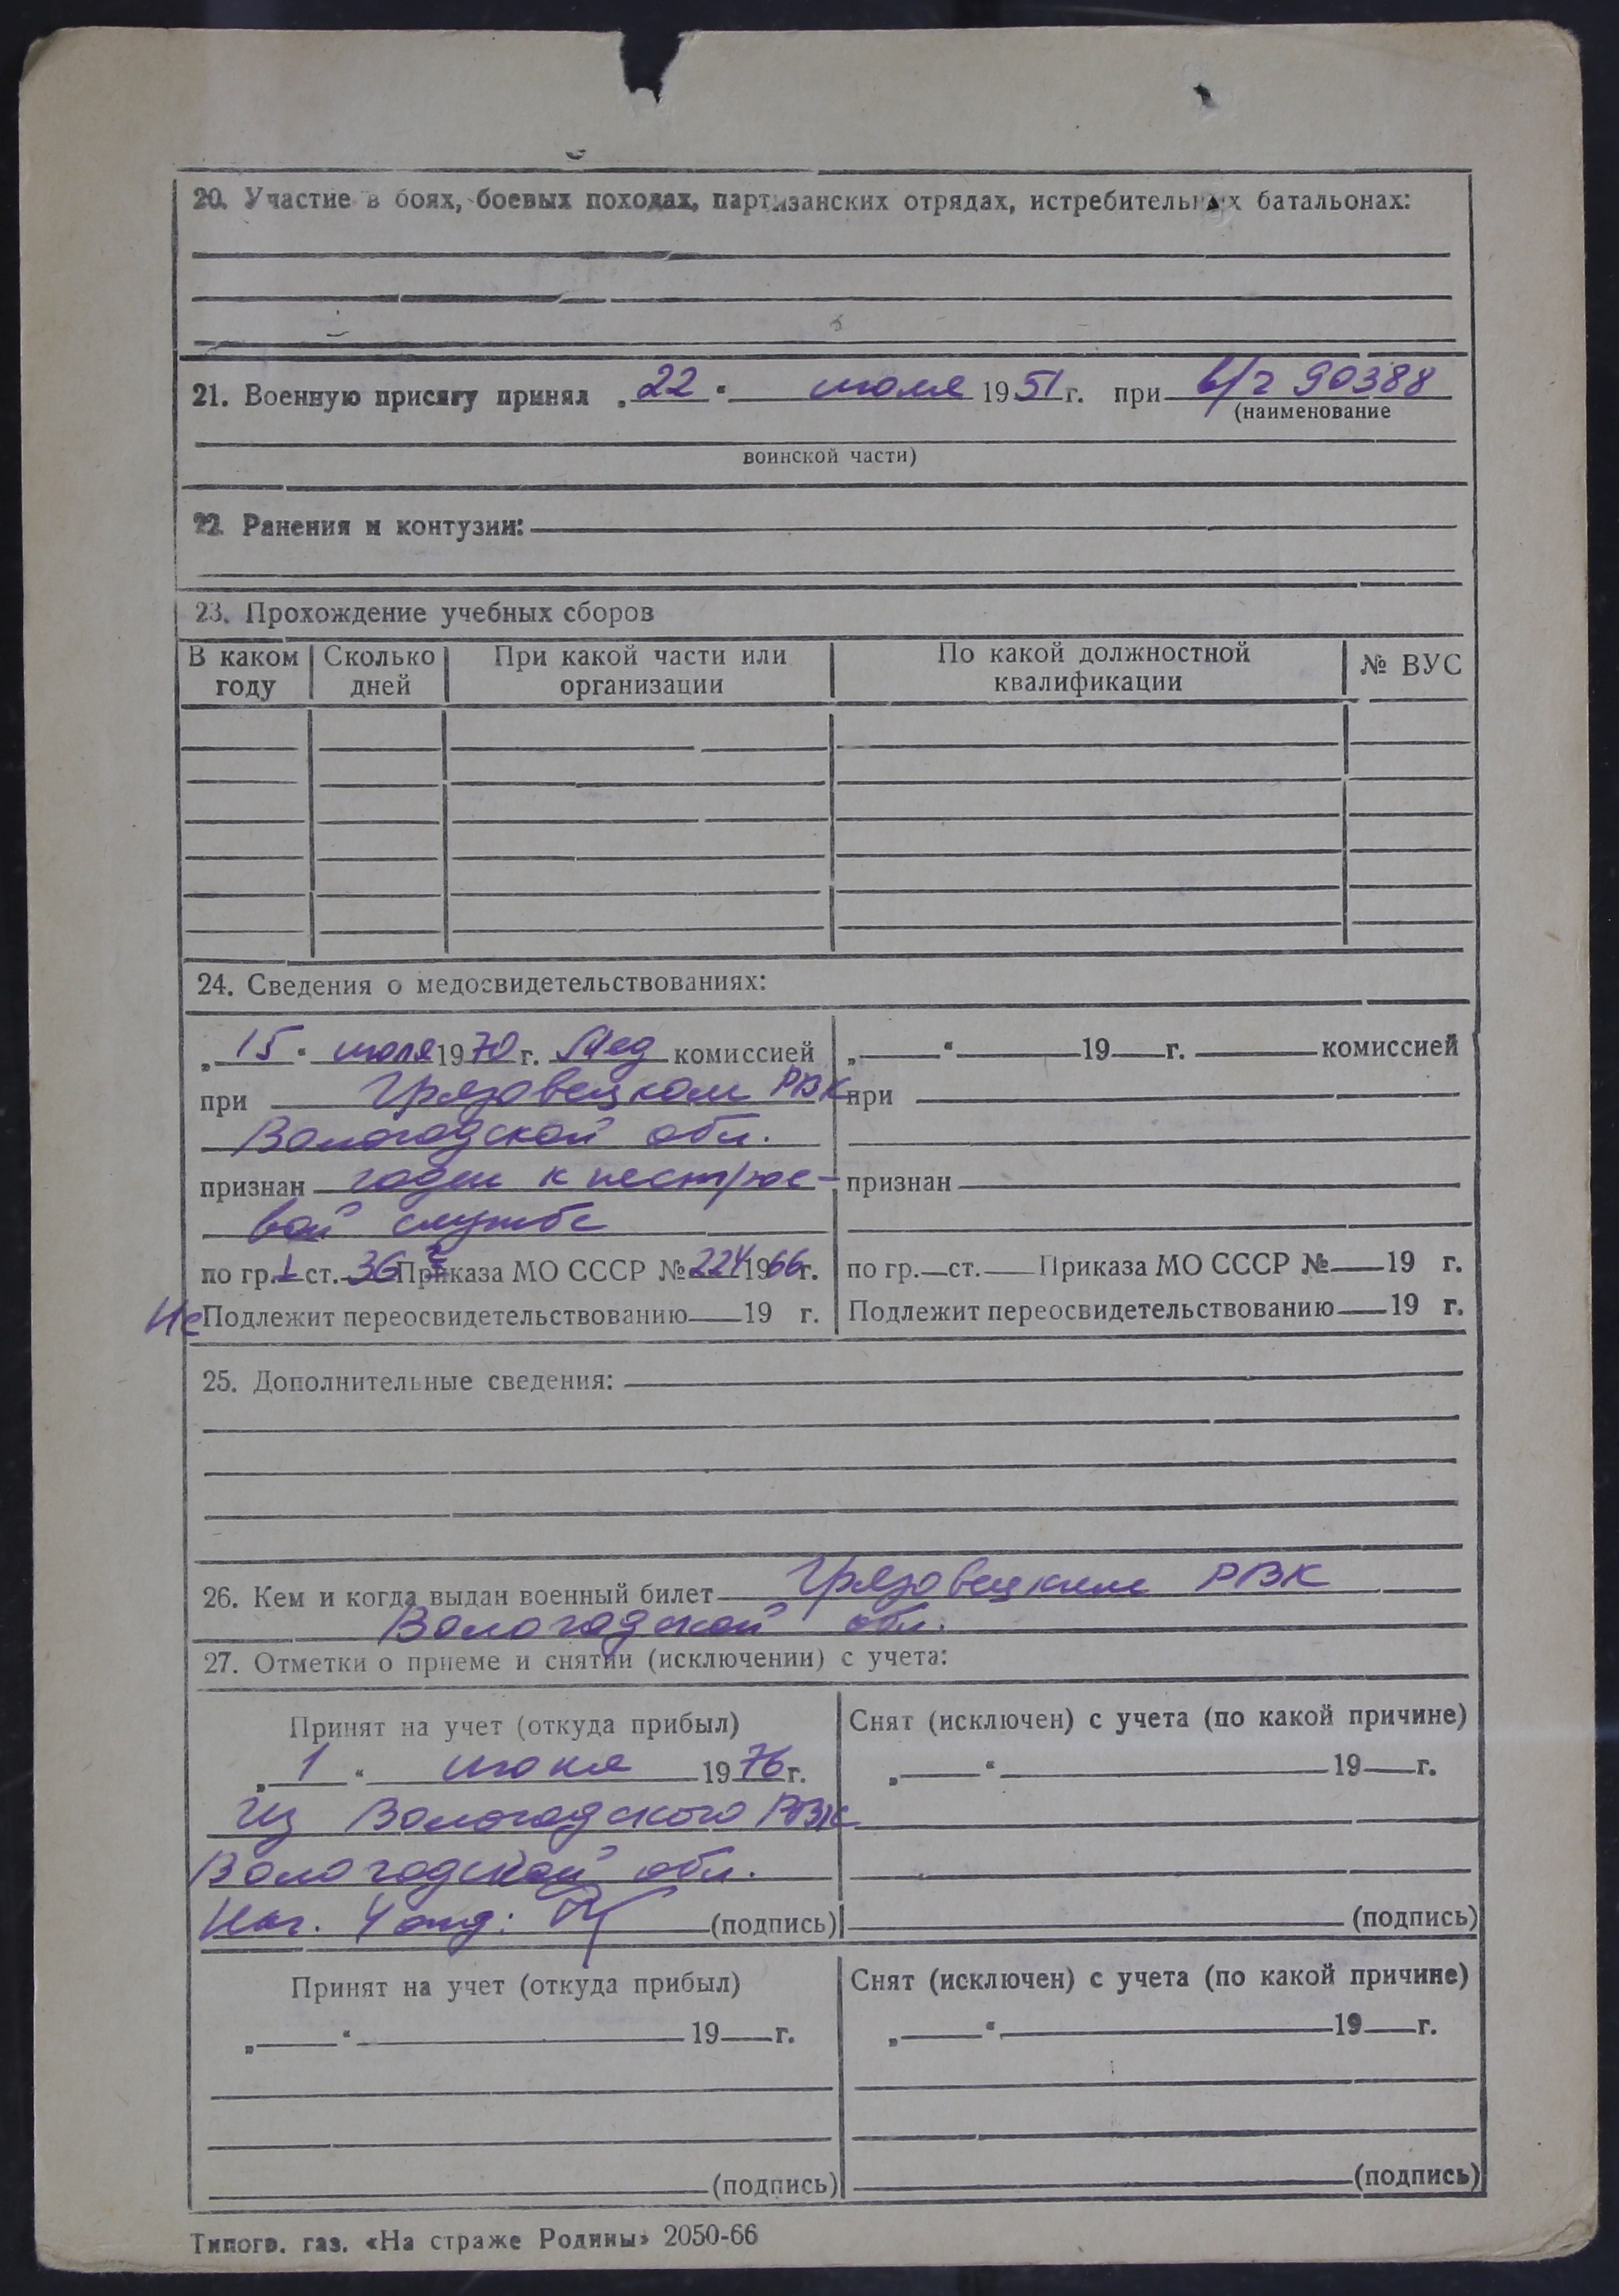 20. Участие в боях, боевых походах, партизанских отрядах, истребительных батальонах:
21. Военную присягу принял „22“ июля 1951 г. при в/ч 90388
(наименование
воинской части)
22. Ранения и контузии:
23. Прохождение учебных сборов
В каком году Сколько дней При какой части или организации По какой должностной квалификации № ВУС
24. Сведения о медосвидетельствованиях:
„15“ июля 1970 г. Мед комиссией
при Грязовецком РВК
Вологодской обл.
признан годен к нестрое-
вой службе
по гр. I ст. 36 Приказа МО СССР № 224 1966 г.
Не Подлежит переосвидетельствованию 19 г.
„ “ 19 г. комиссией
при
признан
по гр. ст. Приказа МО СССР № 19 г.
Подлежит переосвидетельствованию 19 г.
25. Дополнительные сведения:
26. Кем и когда выдан военный билет Грязовецким РВК
Вологодской обл.
27. Отметки о приеме и снятии (исключении) с учета:
Принят на учет (откуда прибыл)
„1“ июня 1976 г.
из Вологодского РВК
Вологодской обл.
Нач. 4 отд: (подпись)
Снят (исключен) с учета (по какой причине)
„ “ 19 г.
(подпись)
Принят на учет (откуда прибыл)
„ “ 19 г.
(подпись)
Снят (исключен) с учета (по какой причине)
„ “ 19 г.
(подпись)
Типогр. газ. «На страже Родины» 2050-66